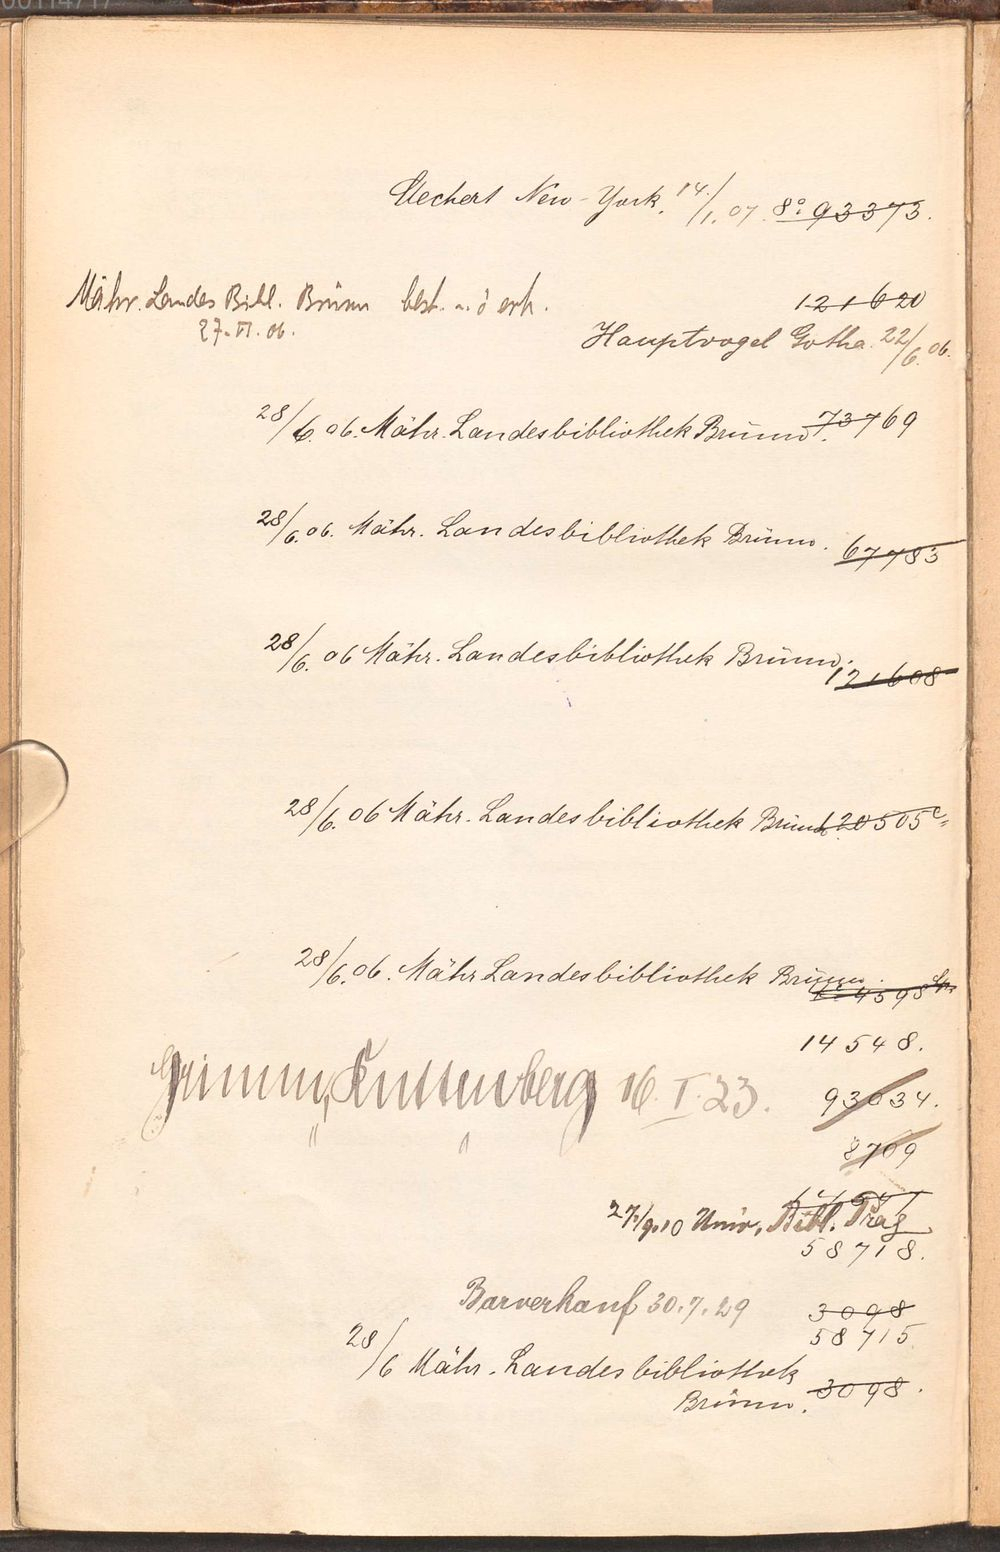 Stechert New-York. 14./1. 07. 8° 93373.
Mähr. Landes Bibl. Brünn best. u. ö erh.
121620
27.VI.06.
Hauptvogel Gotha. 22/6. 06.
28/6. 06. Mähr. Landesbibliothek Brünn. 73769
28/6. 06. Mähr. Landesbibliothek Brünn. 67783
28/6. 06 Mähr. Landesbibliothek Brünn.
121608
28/6. 06 Mähr. Landesbibliothek Brünn 120505
28/6. 06. Mähr Landesbibliothek Brünn.
4598
14548.
Grimm, Kuttenberg 16.I.23.
93034.
8709
27./9.10 Univ. Bibl. Prag
58718.
Barverkauf 30.7.29
3098
58715.
28/6 Mähr. Landesbibliothek
Brünn. 3098.